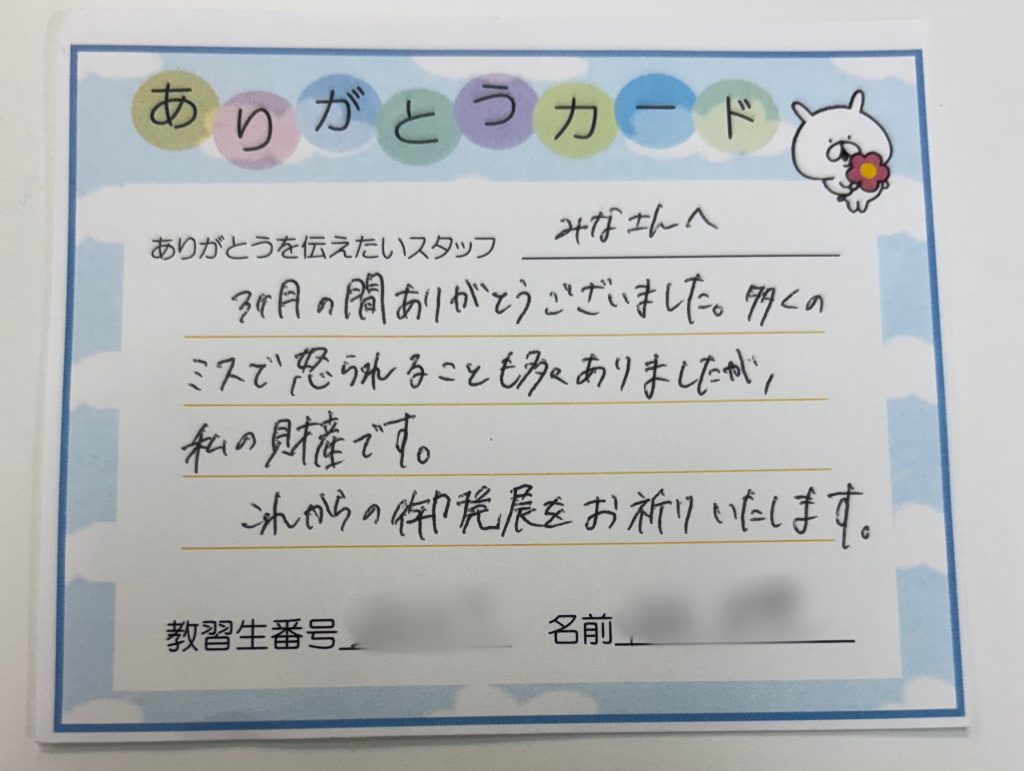 ありがとうカード
ありがとうを伝えたいスタッフ みなさんへ
3ヶ月の間ありがとうございました。多くの
ミスで怒られることも多くありましたが,
私の財産です。
これからの御発展をお祈りいたします。
教習生番号
名前